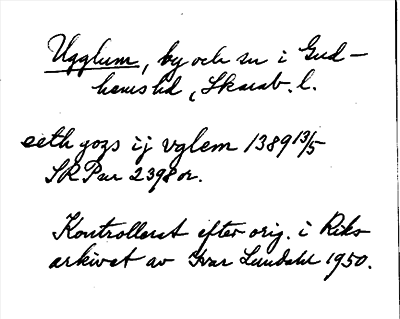 Ugglum, by och sn i Gud-
hems hd, Skarab. l.
eeth gozs ij vglem 1389 13/5
SRPav 2398 or.
Kontrollerat efter orig. i Riks-
arkivet av Ivar Lundahl 1950.